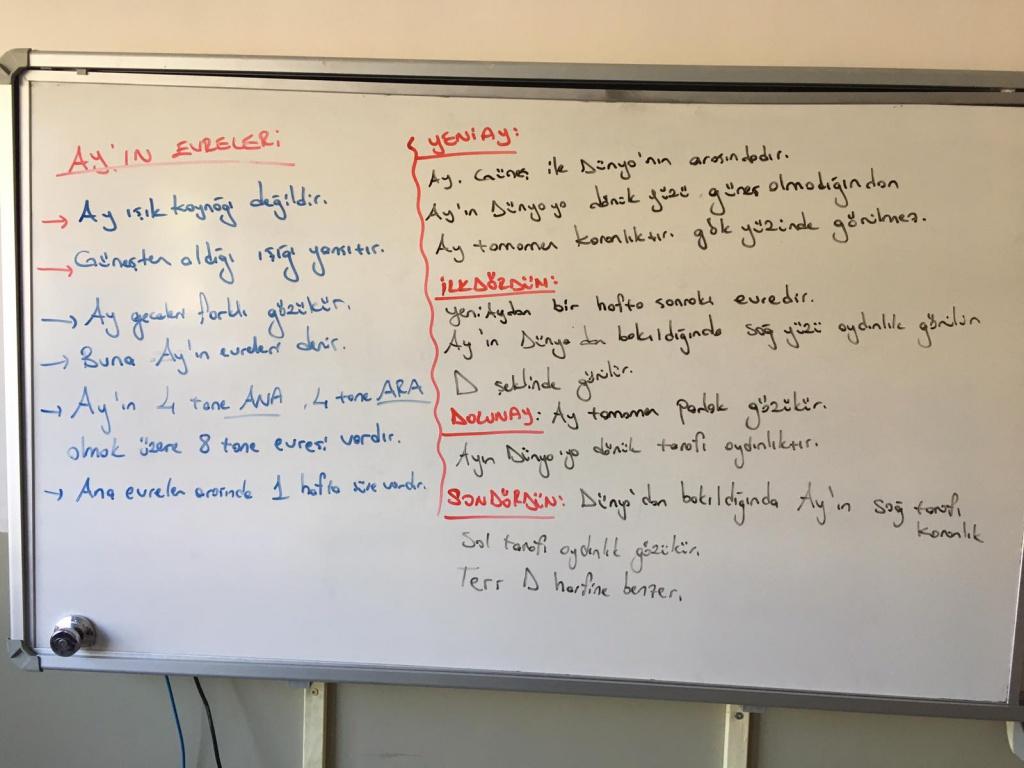 AY'IN EVRELERİ
→ Ay ışık kaynağı değildir.
→ Güneşten aldığı ışığı yansıtır.
→ Ay geceleri farklı gözükür.
→ Buna Ay'ın evreleri denir.
→ Ay'ın 4 tane ANA, 4 tane ARA
olmak üzere 8 tane evresi vardır.
→ Ana evreler arasında 1 hafta süre vardır.
YENİAY:
Ay. Güneş ile Dünya'nın arasındadır.
Ay'ın Dünyaya dönük yüzü güneş olmadığından
Ay tamamen karanlıktır. gök yüzünde görülmez.
İLKDÖRDÜN:
Yeni Aydan bir hafta sonraki evredir.
Ay'ın Dünya dan bakıldığında sağ yüzü aydınlık görülür
D şeklinde görülür.
DOLUNAY: Ay tamamen parlak gözükür.
Ayın Dünya'ya dönük tarafı aydınlıktır.
SONDÖRDÜN: Dünya'dan bakıldığında Ay'ın sağ tarafı
karanlık
Sol tarafı aydınlık gözükür.
Ters D harfine benzer.